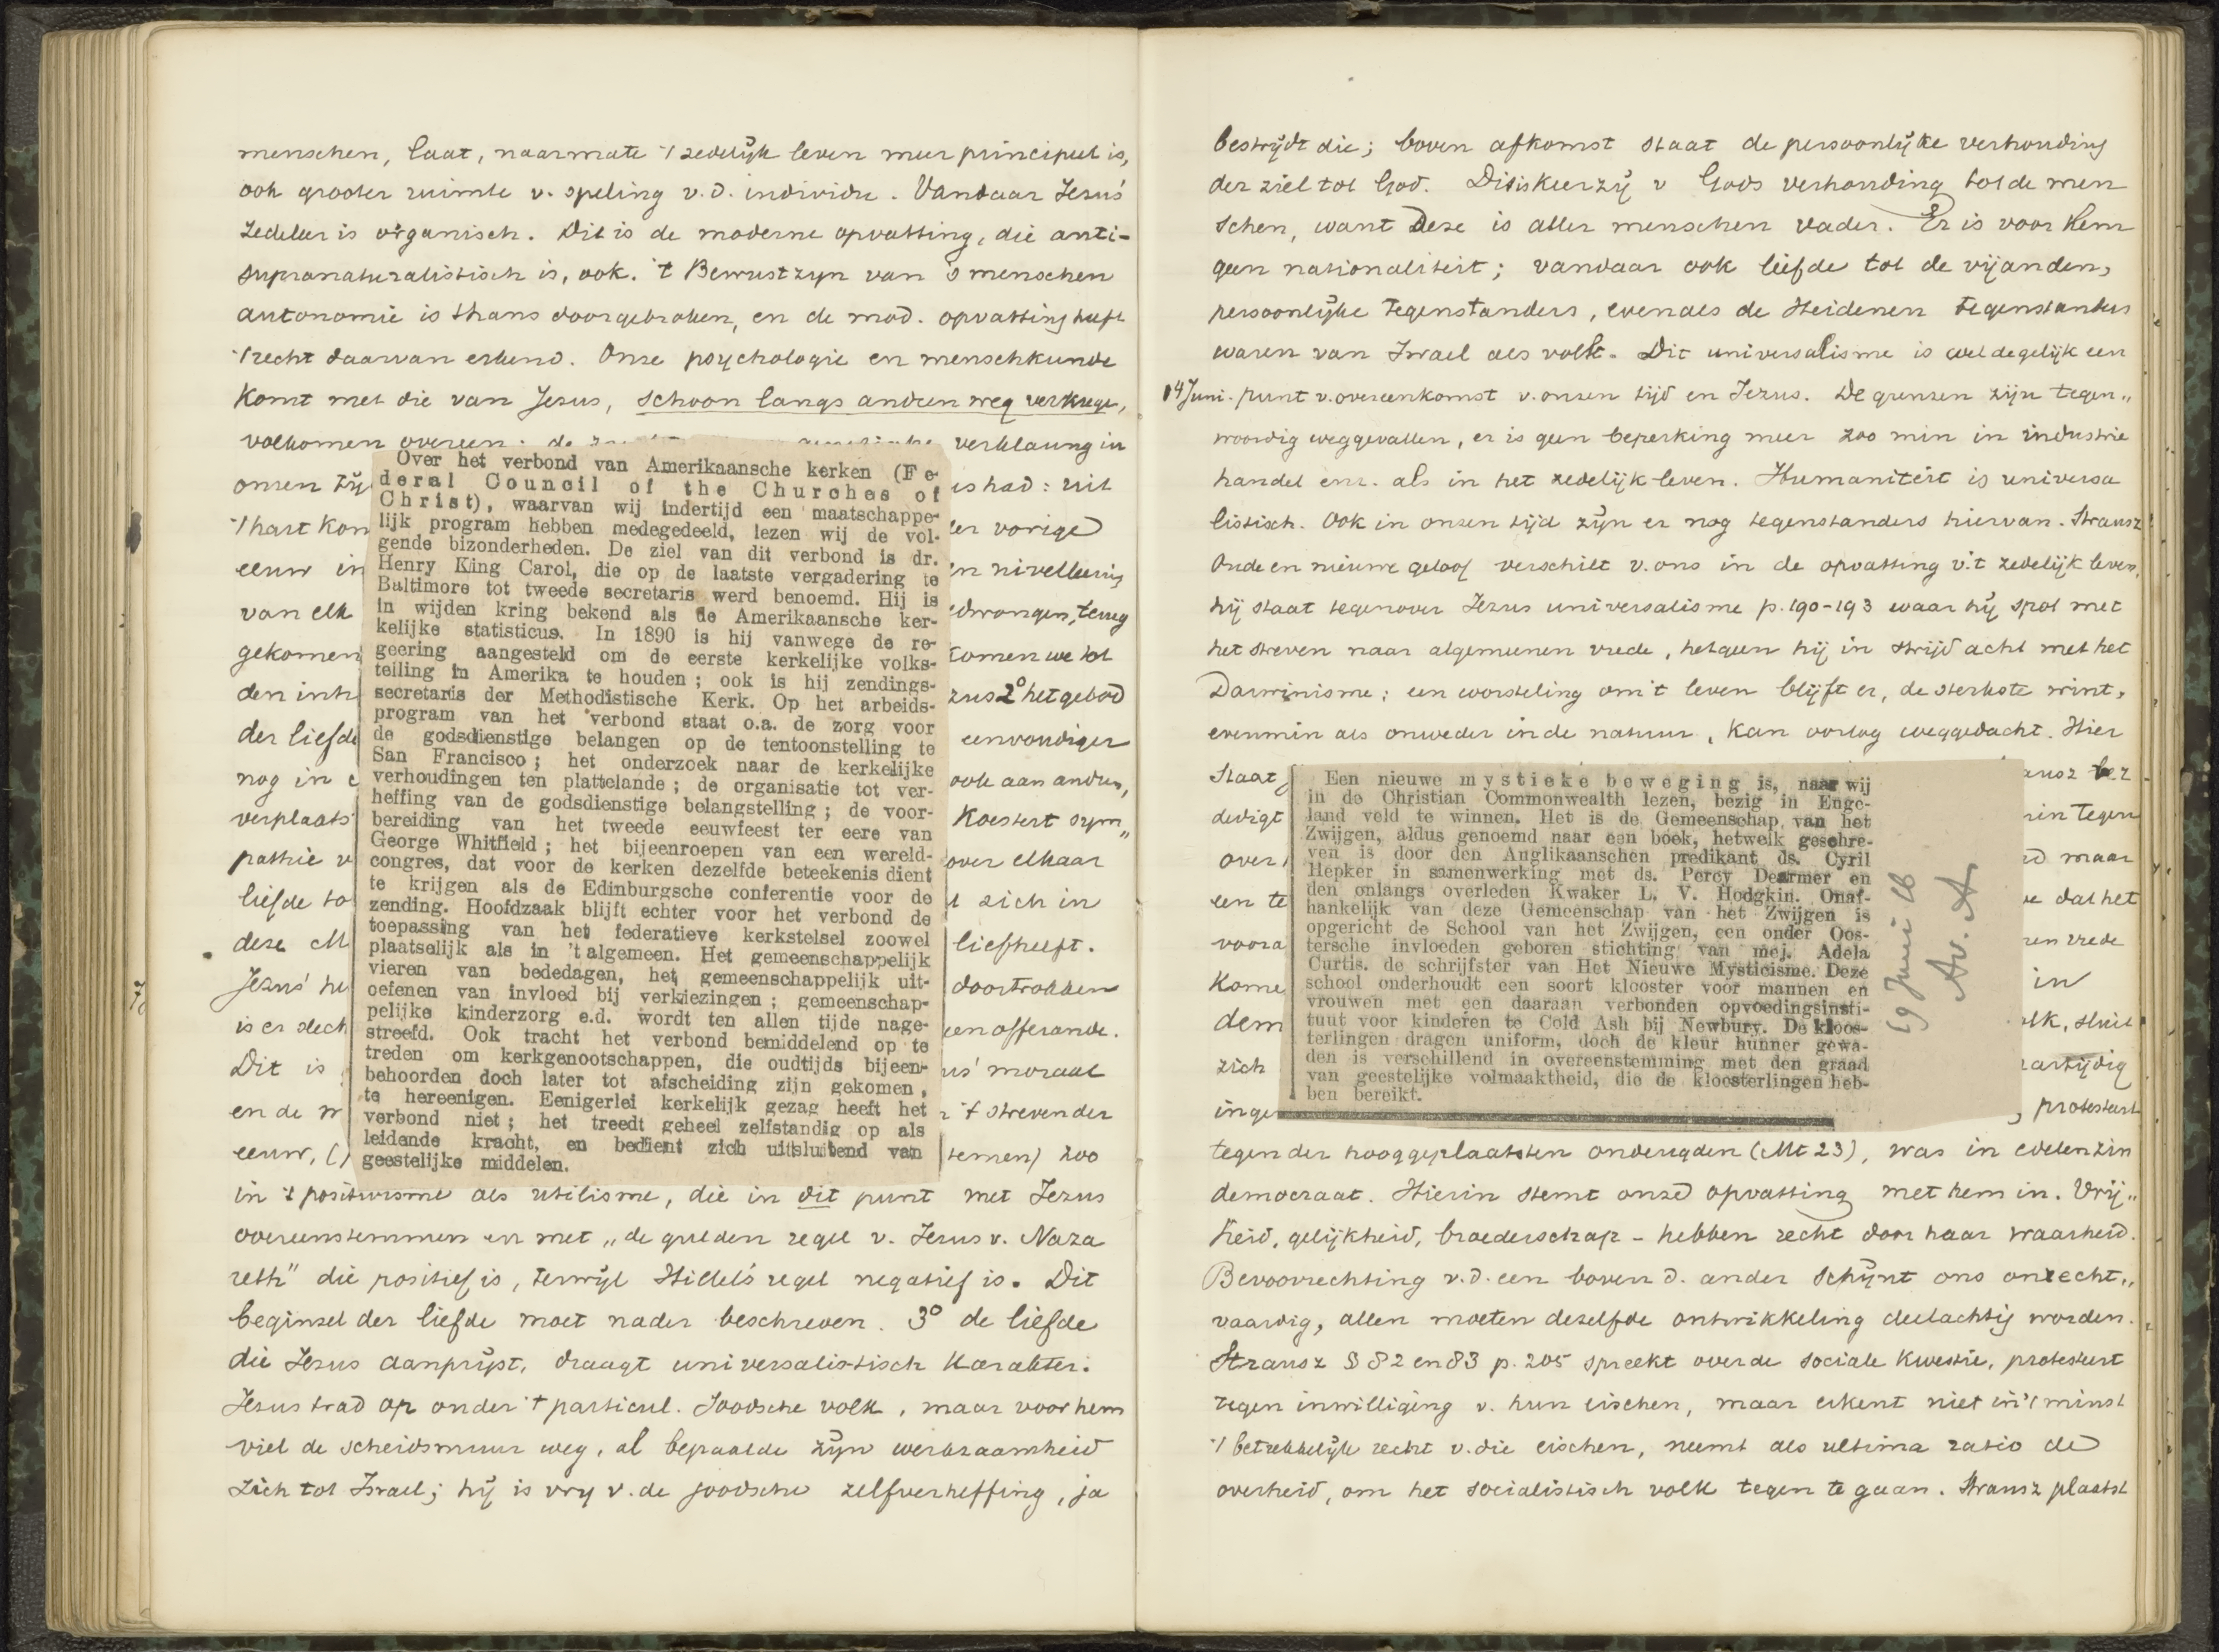 menschen, laat, naarmate 't zedelijk leven meer principieel is,
ook grooter ruimte v. speling v.d. individu. Vandaar Jezus'
zedeleer is organisch. Dit is de moderne opvatting, die anti-
supranaturalistisch is, ook. 't Bewustzyn van 's menschen
autonomie is thans doorgebroken, en de mod. opvatting heeft
't recht daarvan erkend. Onze psychologie en menschkunde
komt met die van Jezus, schoon langs andren weg verkregen,
volkomen overeen. de verklaring in
onzen tij is had: uit
't hart kon er vorige
eeuw in en nivelleering
van elk edwongen, terug
gekomen komen we tot
den inh zus 2° het gebod
der liefde eenvoudiger
nog in ook aan andren,
verplaats koestert sym„
pathie v over elkaar
liefde to zich in
deze M liefheeft.
Jezus' he doortrokken
is er slech een offerande.
Dit is us' moraal
en de 't streven der
eeuw, (temen) zoo
in 't positivisme als utilisme, die in dit punt met Jezus
overeenstemmen en met „de gulden regel v. Jezus v. Naza
reth" die positief is, terwijl Hillel's regel negatief is. Dit
beginsel der liefde moet nader beschreven. 3° de liefde
die Jezus aanprijst, draagt universalistisch karakter.
Jezus trad op onder 't particul. Joodsche volk, maar voor hem
viel de scheidsmuur weg, al bepaalde zijn werkzaamheid
zich tot Israel; hij is vry v. de joodsche zelfverheffing, ja
Over het verbond van Amerikaansche kerken (Fe-
deral Council of the Churches of
Christ), waarvan wij indertijd een maatschappe-
lijk program hebben medegedeeld, lezen wij de vol-
gende bizonderheden. De ziel van dit verbond is dr.
Henry King Carol, die op de laatste vergadering te
Baltimore tot tweede secretaris werd benoemd. Hij is
in wijden kring bekend als de Amerikaansche ker-
kelijke statisticus. In 1890 is hij vanwege de re-
geering aangesteld om de eerste kerkelijke volks-
telling in Amerika te houden; ook is hij zendings-
secretaris der Methodistische Kerk. Op het arbeids-
program van het verbond staat o.a. de zorg voor
de godsdienstige belangen op de tentoonstelling te
San Francisco; het onderzoek naar de kerkelijke
verhoudingen ten plattelande; de organisatie tot ver-
heffing van de godsdienstige belangstelling; de voor-
bereiding van het tweede eeuwfeest ter eere van
George Whitfield; het bijeenroepen van een wereld-
congres, dat voor de kerken dezelfde beteekenis dient
te krijgen als de Edinburgsche conferentie voor de
zending. Hoofdzaak blijft echter voor het verbond de
toepassing van het federatieve kerkstelsel zoowel
plaatselijk als in 't algemeen. Het gemeenschappelijk
vieren van bededagen, het gemeenschappelijk uit-
oefenen van invloed bij verkiezingen; gemeenschap-
pelijke kinderzorg e.d. wordt ten allen tijde nage-
streefd. Ook tracht het verbond bemiddelend op te
treden om kerkgenootschappen, die oudtijds bijeen-
behoorden doch later tot afscheiding zijn gekomen,
te hereenigen. Eenigerlei kerkelijk gezag heeft het
verbond niet; het treedt geheel zelfstandig op als
leidende kracht, en bedient zich uitsluitend van
geestelijke middelen.
bestrijdt die; boven afkomst staat de persoonlijke verhouding
der ziel tot God. Dit is keerzij v Gods verhouding tot de men
schen, want deze is aller menschen vader. Er is voor Hem
geen nationaliteit; vandaar ook liefde tot de vijanden,
persoonlijke tegenstanders, evenals de Heidenen tegenstanders
waren van Israel als volk. Dit universalisme is wel degelijk een
14 Juni. punt v. overeenkomst v. onzen tijd en Jezus. De grenzen zijn tegen„
woordig weggevallen, er is geen beperking meer zoo min in industrie
handel enz. als in het zedelijk leven. Humaniteit is universa
listisch. Ook in onzen tijd zijn er nog tegenstanders hiervan. Strausz
Oude en nieuwe geloof verschilt v. ons in de opvatting v. 't zedelijk leven,
hij staat tegenover Jezus universalisme p. 190-193 waar hij spot met
het streven naar algemeenen vrede, hetgeen hij in strijd acht met het
Darwinisme; een worsteling om 't leven blijft er, de sterkste wint,
evenmin als onweder in de natuur, kan oorlog weggedacht. Hier
staat ausz ver
dedigt in tegen
over d maar
een te e dat het
voora en vrede
kome in
dem olk, sluit
zich artijdig
inge , protesteert
tegen der hooggeplaatsten ondeugden (Mt 23), was in edelen zin
democraat. Hierin stemt onze opvatting met hem in. Vrij„
heid, gelijkheid, broederschap - hebben recht door haar waarheid.
Bevoorrechting v.d. een boven d. ander schijnt ons onrecht„
vaardig, allen moeten dezelfde ontwikkeling deelachtig worden.
Strausz § 82 en 83 p. 205 spreekt over de sociale kwestie, protesteert
tegen inwilliging v. hun eischen, maar erkent niet in 't minst
't betrekkelijk recht v. die eischen, neemt als ultima ratio de
overheid, om het socialistisch volk tegen te gaan. Strausz plaatst
Een nieuwe mystieke beweging is, naar wij
in de Christian Commonwealth lezen, bezig in Enge-
land veld te winnen. Het is de Gemeenschap van het
Zwijgen, aldus genoemd naar een boek, hetwelk geschre-
ven is door den Anglikaanschen predikant ds. Cyril
Hepker in samenwerking met ds. Percy Dearmer en
den onlangs overleden Kwaker L. V. Hodgkin. Onaf-
hankelijk van deze Gemeenschap van het Zwijgen is
opgericht de School van het Zwijgen, een onder Oos-
tersche invloeden geboren stichting van mej. Adela
Curtis, de schrijfster van Het Nieuwe Mysticisme. Deze
school onderhoudt een soort klooster voor mannen en
vrouwen met een daaraan verbonden opvoedingsinsti-
tuut voor kinderen te Cold Ash bij Newbury. De kloos-
terlingen dragen uniform, doch de kleur hunner gewa-
den is verschillend in overeenstemming met den graad
van geestelijke volmaaktheid, die de kloosterlingen heb-
ben bereikt.
19 Juni 16
Av. A